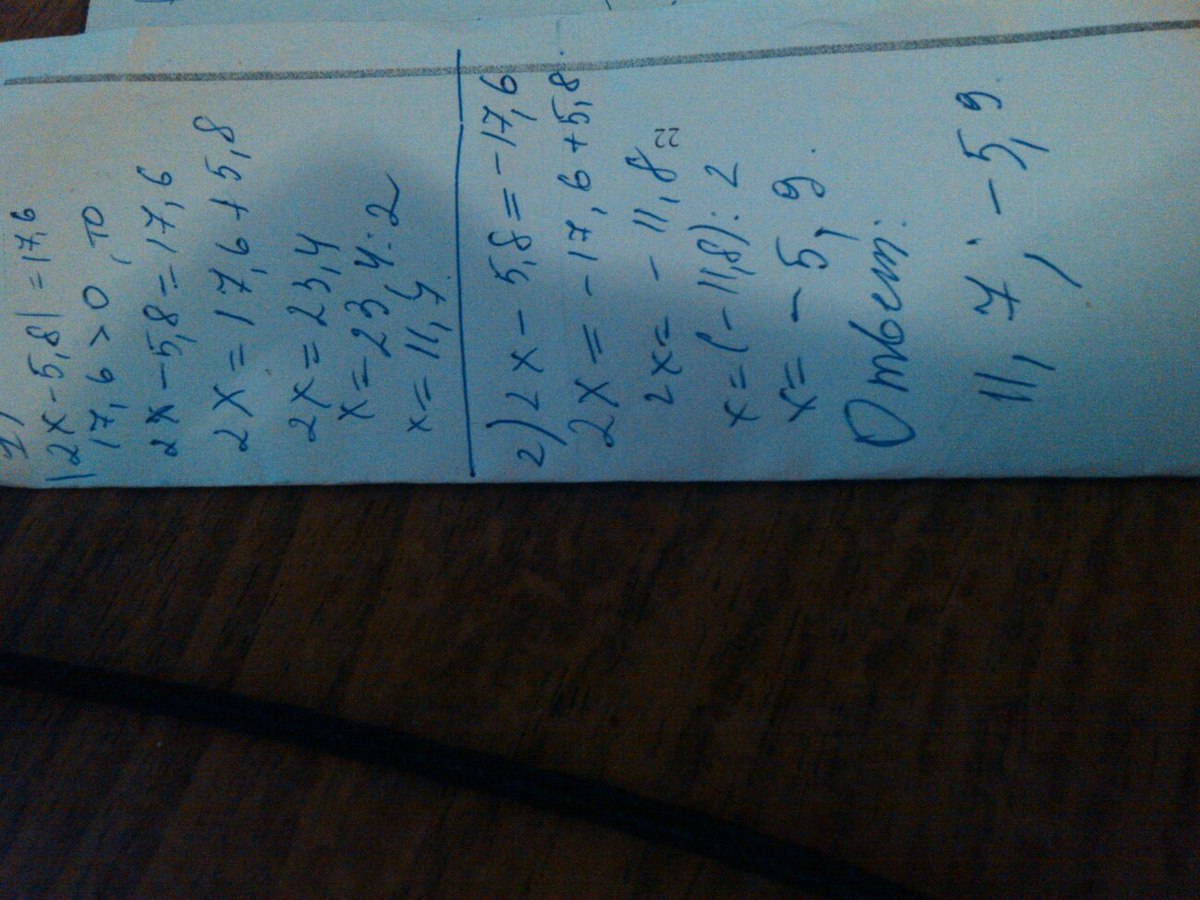 1)
|2x-5,8|=17,6
17,6>0, то
2x-5,8=17,6
2x=17,6+5,8
2x=23,4
x=23,4:2
x=11,7
2) 2x-5,8=-17,6
2x=-17,6+5,8.
2x=-11,8
x=(-11,8):2
x=-5,9.
Ответ:
11,7; -5,9.
22